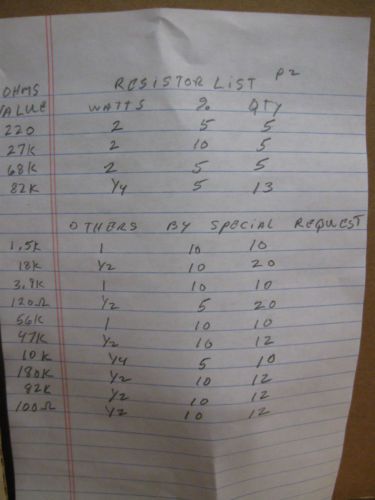 RESISTOR LIST P2
OHMS VALUE WATTS % QTY
220 2 5 5
27K 2 10 5
68K 2 5 5
82K 1/4 5 13
OTHERS BY SPECIAL REQUEST
1.5K 1 10 10
18K 1/2 10 20
3.9K 1 10 10
120Ω 1/2 5 20
56K 1 10 10
47K 1/2 10 12
10K 1/4 5 10
180K 1/2 10 12
82K 1/2 10 12
100Ω 1/2 10 12